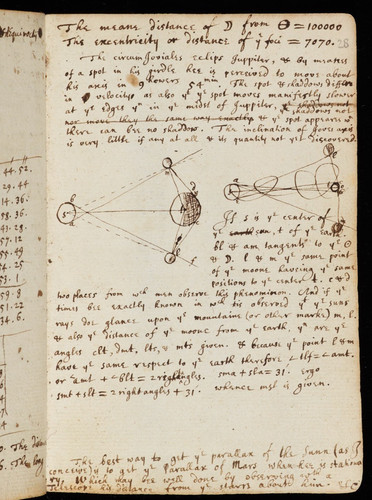 The meane distance of D from ⊖ = 100000
The excentricity or distance of yᵉ foci = 7070. 28
The circumjoviales eclips Juppiter, & by meanes
of a spot in his girdle hee is perceived to move about
his axis in 9 howers 54ᵐ. The spot & shaddows differ
in velocity as also yᵉ spot moves manifestly slower
at yᵉ edges yⁿ in yᵉ midst of Juppiter, shaddows not
nor move they the same way exactly & yᵉ spot appeares wⁿ
there can bee no shaddow. The inclination of Joves axis
is very little if any at all & its quantity not yet discovered.
44. 52.
29. 44
14. 36.
38.
43. 28.
57. 12
55. 49
54. 25
53. 1
59. 8
51. 22
34. 6.
b
l
s
d
m
a
c
If s is yᵉ center of
yᵉ sun, t of yᵉ earth
bl & am tangents to yᵉ ⊖
& D. l & m yᵉ same point
of yᵉ moone haveing yᵉ same
positions to yᵉ center t. c & d
two places from wᶜʰ men observe this phenominon. And if yᵉ
times bee exactly known in wᶜʰ is observed yᵗ yᵉ suns
rays doe glance upon yᵉ mountains (or other marke) m, l.
& also yᵉ distance of yᵉ moone from yᵉ earth. yⁿ are yᵉ
angles clt, dmt, lts, & mts given. & because yᵉ point l & m
have yᵉ same respect to yᵉ earth therefore <tlb = <amt.
or <amt + <blt = 2 right angles. sma + sla = 31. ergo
smt + slt = 2 right angles + 31. whence msl is given.
The best way to get yᵉ parallax of the Sunn (as I
conceive) is to get yᵉ Parallax of Mars when hee is stationary.
Which may bee well done by observing with a
telescope his distance from yᵉ starrs about him.